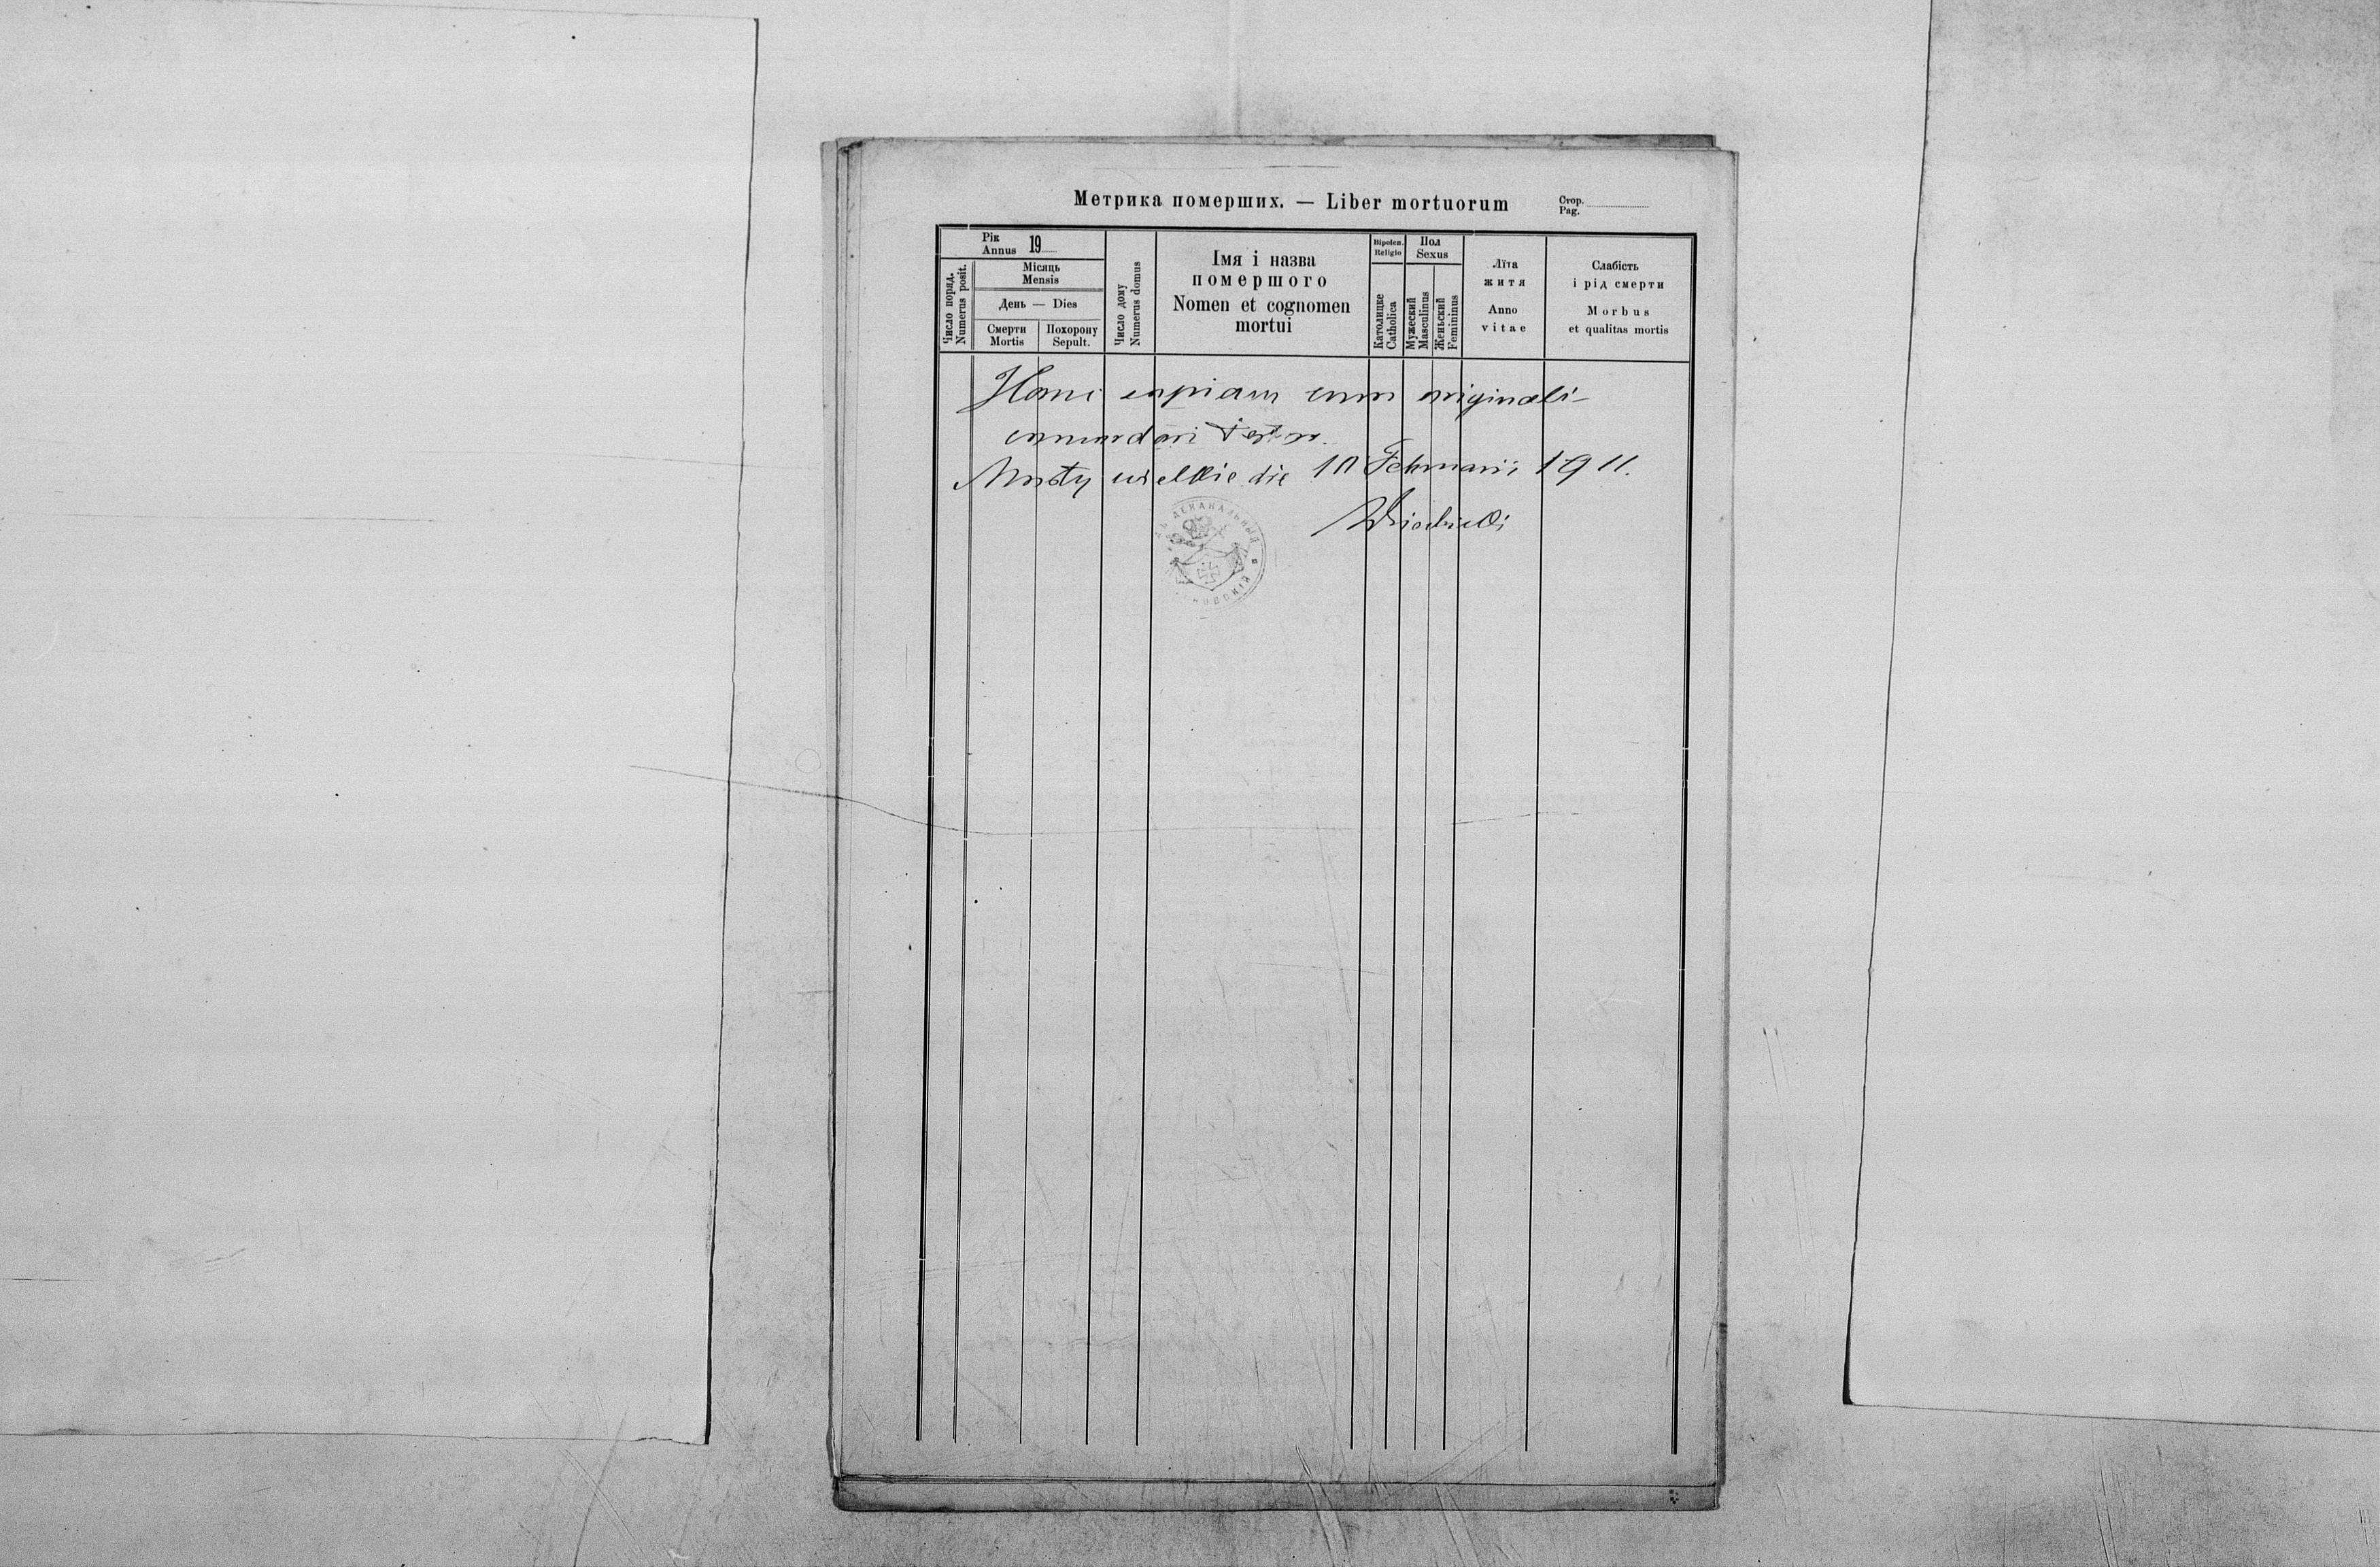 Метрика померших. — Liber mortuorum
Стор.
Pag.
Рік
Annus 19
Число поряд.
Numerus posit.
Місяць
Mensis
День — Dies
Смерти
Mortis
Похорону
Sepult.
Число дому
Numerus domus
Імя і назва
помершого
Nomen et cognomen
mortui
Віроісп.
Religio
Католицке
Catholica
Пол
Sexus
Мужеский
Masculinus
Женьский
Femininus
Лїта
житя
Anno
vitae
Слабість
і рід смерти
Morbus
et qualitas mortis
Hanc copiam cum originali
concordari testor.
Mosty wielkie die 10 Februarii 1911.
ДЕКАНАЛЬНЫЙ